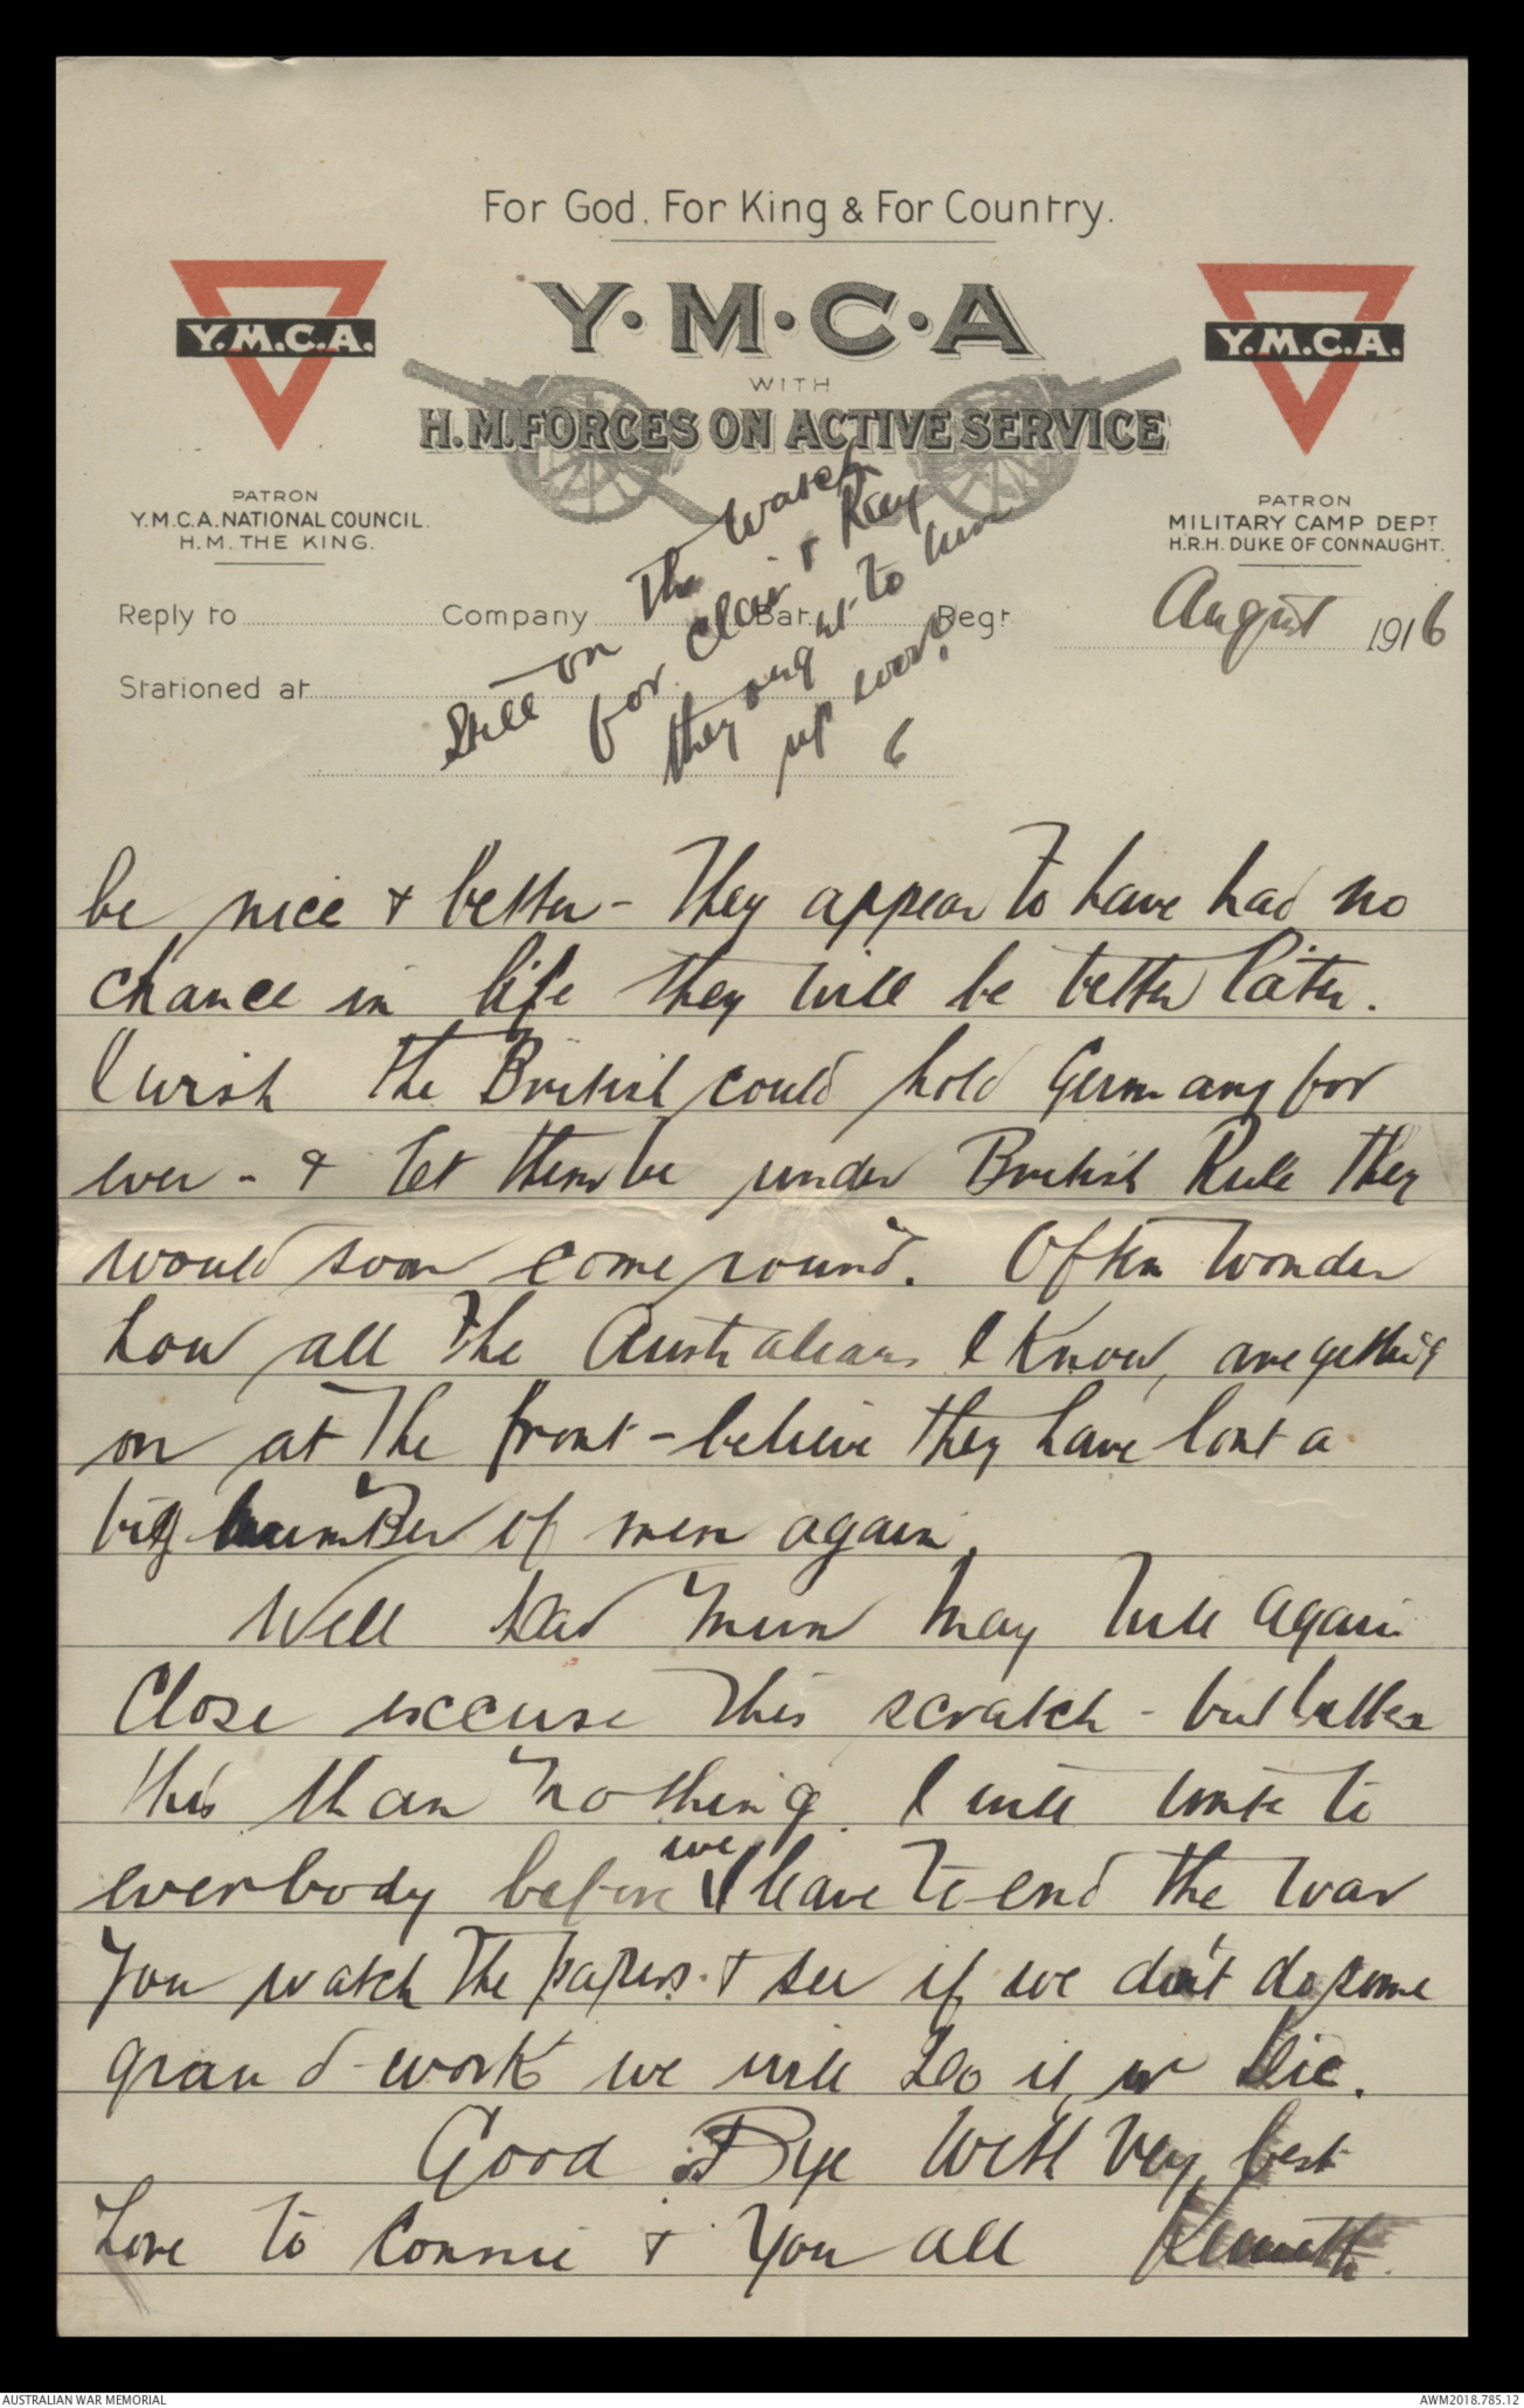 For God, For King & For Country.
Y.M.C.A
WITH
H.M. FORCES ON ACTIVE SERVICE
Y.M.C.A.
Y.M.C.A.
PATRON
Y.M.C.A. NATIONAL COUNCIL.
H.M. THE KING.
PATRON
MILITARY CAMP DEPT
H.R.H. DUKE OF CONNAUGHT.
Reply to Company Bat. Regt
August 1916
Stationed at
Still on the watch
for Clair & Ray
they ought to turn
up soon.
6
be nice & better - They appear to have had no
chance in life they will be better later.
I wish the British could hold Germany for
ever - & let them be under British Rule they
would soon come round. Often wonder
how all the Australians I know, are getting
on at the front - believe they have lost a
big number of men again.
Well Dad Mum May will again
Close excuse this scratch - but better
this than nothing. I will write to
everbody before we leave to end the war
You watch the papers & see if we don't do some
grand work we will do it, or die.
Good Bye With Very best
Love to Connie & You all Kenneth.
AUSTRALIAN WAR MEMORIAL
AWM2018.785.12